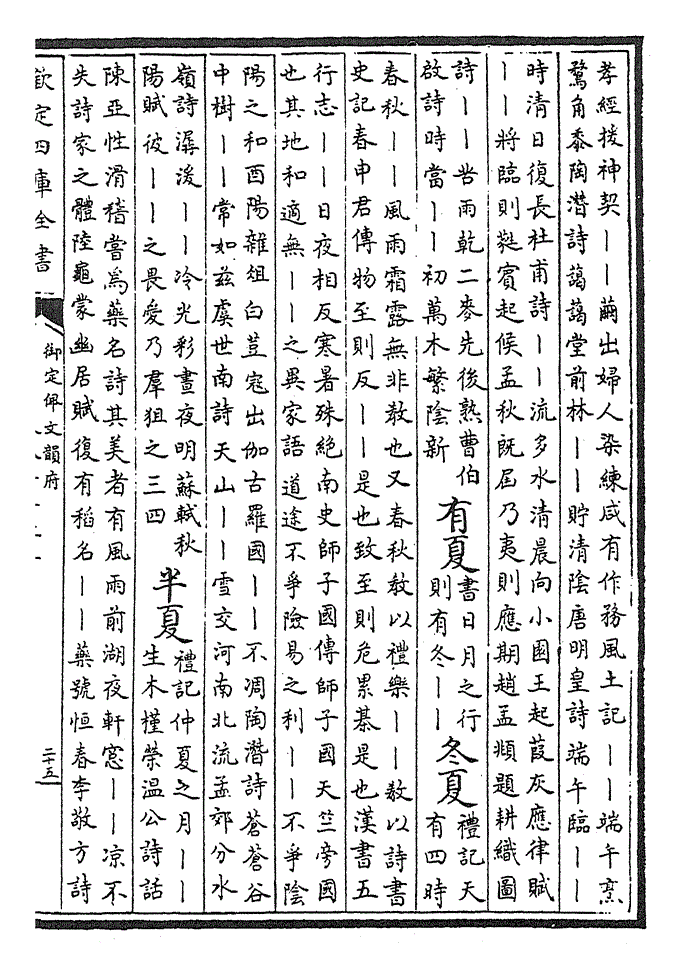 孝經援神契｜｜繭出婦人染練咸有作務風土記｜｜端午烹
鶩角黍陶潛詩藹藹堂前林｜｜貯清陰唐明皇詩端午臨｜｜
時清日復長杜甫詩｜｜流多水清晨向小園王起葭灰應律賦
｜｜將臨則蕤賓起候孟秋既屆乃夷則應期趙孟頫題耕織圖
詩｜｜苦雨乾二麥先後熟曹伯
啟詩時當｜｜初萬木繁陰新
有夏
書日月之行
則有冬｜｜
冬夏
禮記天
有四時
春秋｜｜風雨霜露無非教也又春秋教以禮樂｜｜教以詩書
史記春申君傳物至則反｜｜是也致至則危累棊是也漢書五
行志｜｜日夜相反寒暑殊絕南史師子國傳師子國天竺旁國
也其地和適無｜｜之異家語道途不爭險易之利｜｜不爭陰
陽之和酉陽雜俎白荳蔻出伽古羅國｜｜不凋陶潛詩蒼蒼谷
中樹｜｜常如茲虞世南詩天山｜｜雪交河南北流孟郊分水
嶺詩潺湲｜｜冷光彩晝夜明蘇軾秋
陽賦彼｜｜之畏愛乃羣狙之三四
半夏
禮記仲夏之月｜｜
生木槿榮溫公詩話
陳亞性滑稽嘗爲藥名詩其美者有風雨前湖夜軒窓｜｜凉不
失詩家之體陸龜蒙幽居賦復有稻名｜｜藥號恒春李敬方詩
欽定四庫全書
御定佩文韻府
二十五